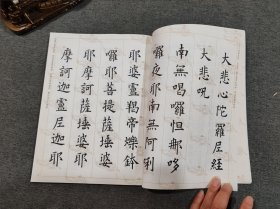 大悲心陀羅尼經
大悲咒
南無喝囉怛那哆
囉夜耶南無阿唎
耶婆盧羯帝爍鉢
囉耶菩提薩埵婆
耶摩訶薩埵婆
摩訶迦盧尼迦耶